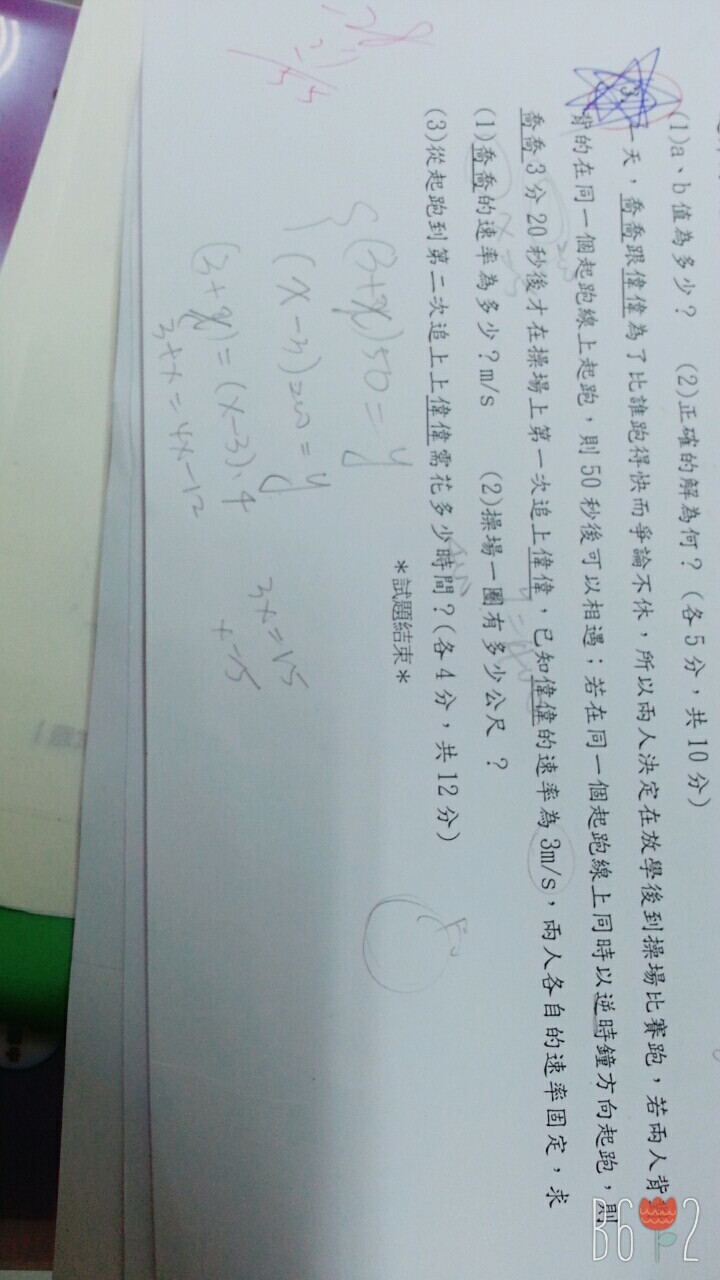 (1)a、b值為多少? (2)正確的解為何?(各5分,共10分)
3.
一天,喬喬跟偉偉為了比誰跑得快而爭論不休,所以兩人決定在放學後到操場比賽跑,若兩人背
背的在同一個起跑線上起跑,則50秒後可以相遇;若在同一個起跑線上同時以逆時鐘方向起跑,則
喬喬3分20秒後才在操場上第一次追上偉偉,已知偉偉的速率為3m/s,兩人各自的速率固定,求
(1)喬喬的速率為多少?m/s (2)操場一圈有多少公尺 ?
(3)從起跑到第二次追上上偉偉需花多少時間?(各4分,共12分)
*試題結束*
(3+x)50=y
(x-3)200=y
(3+x)=(x-3)·4
3+x=4x-12
3x=15
x=5
B612